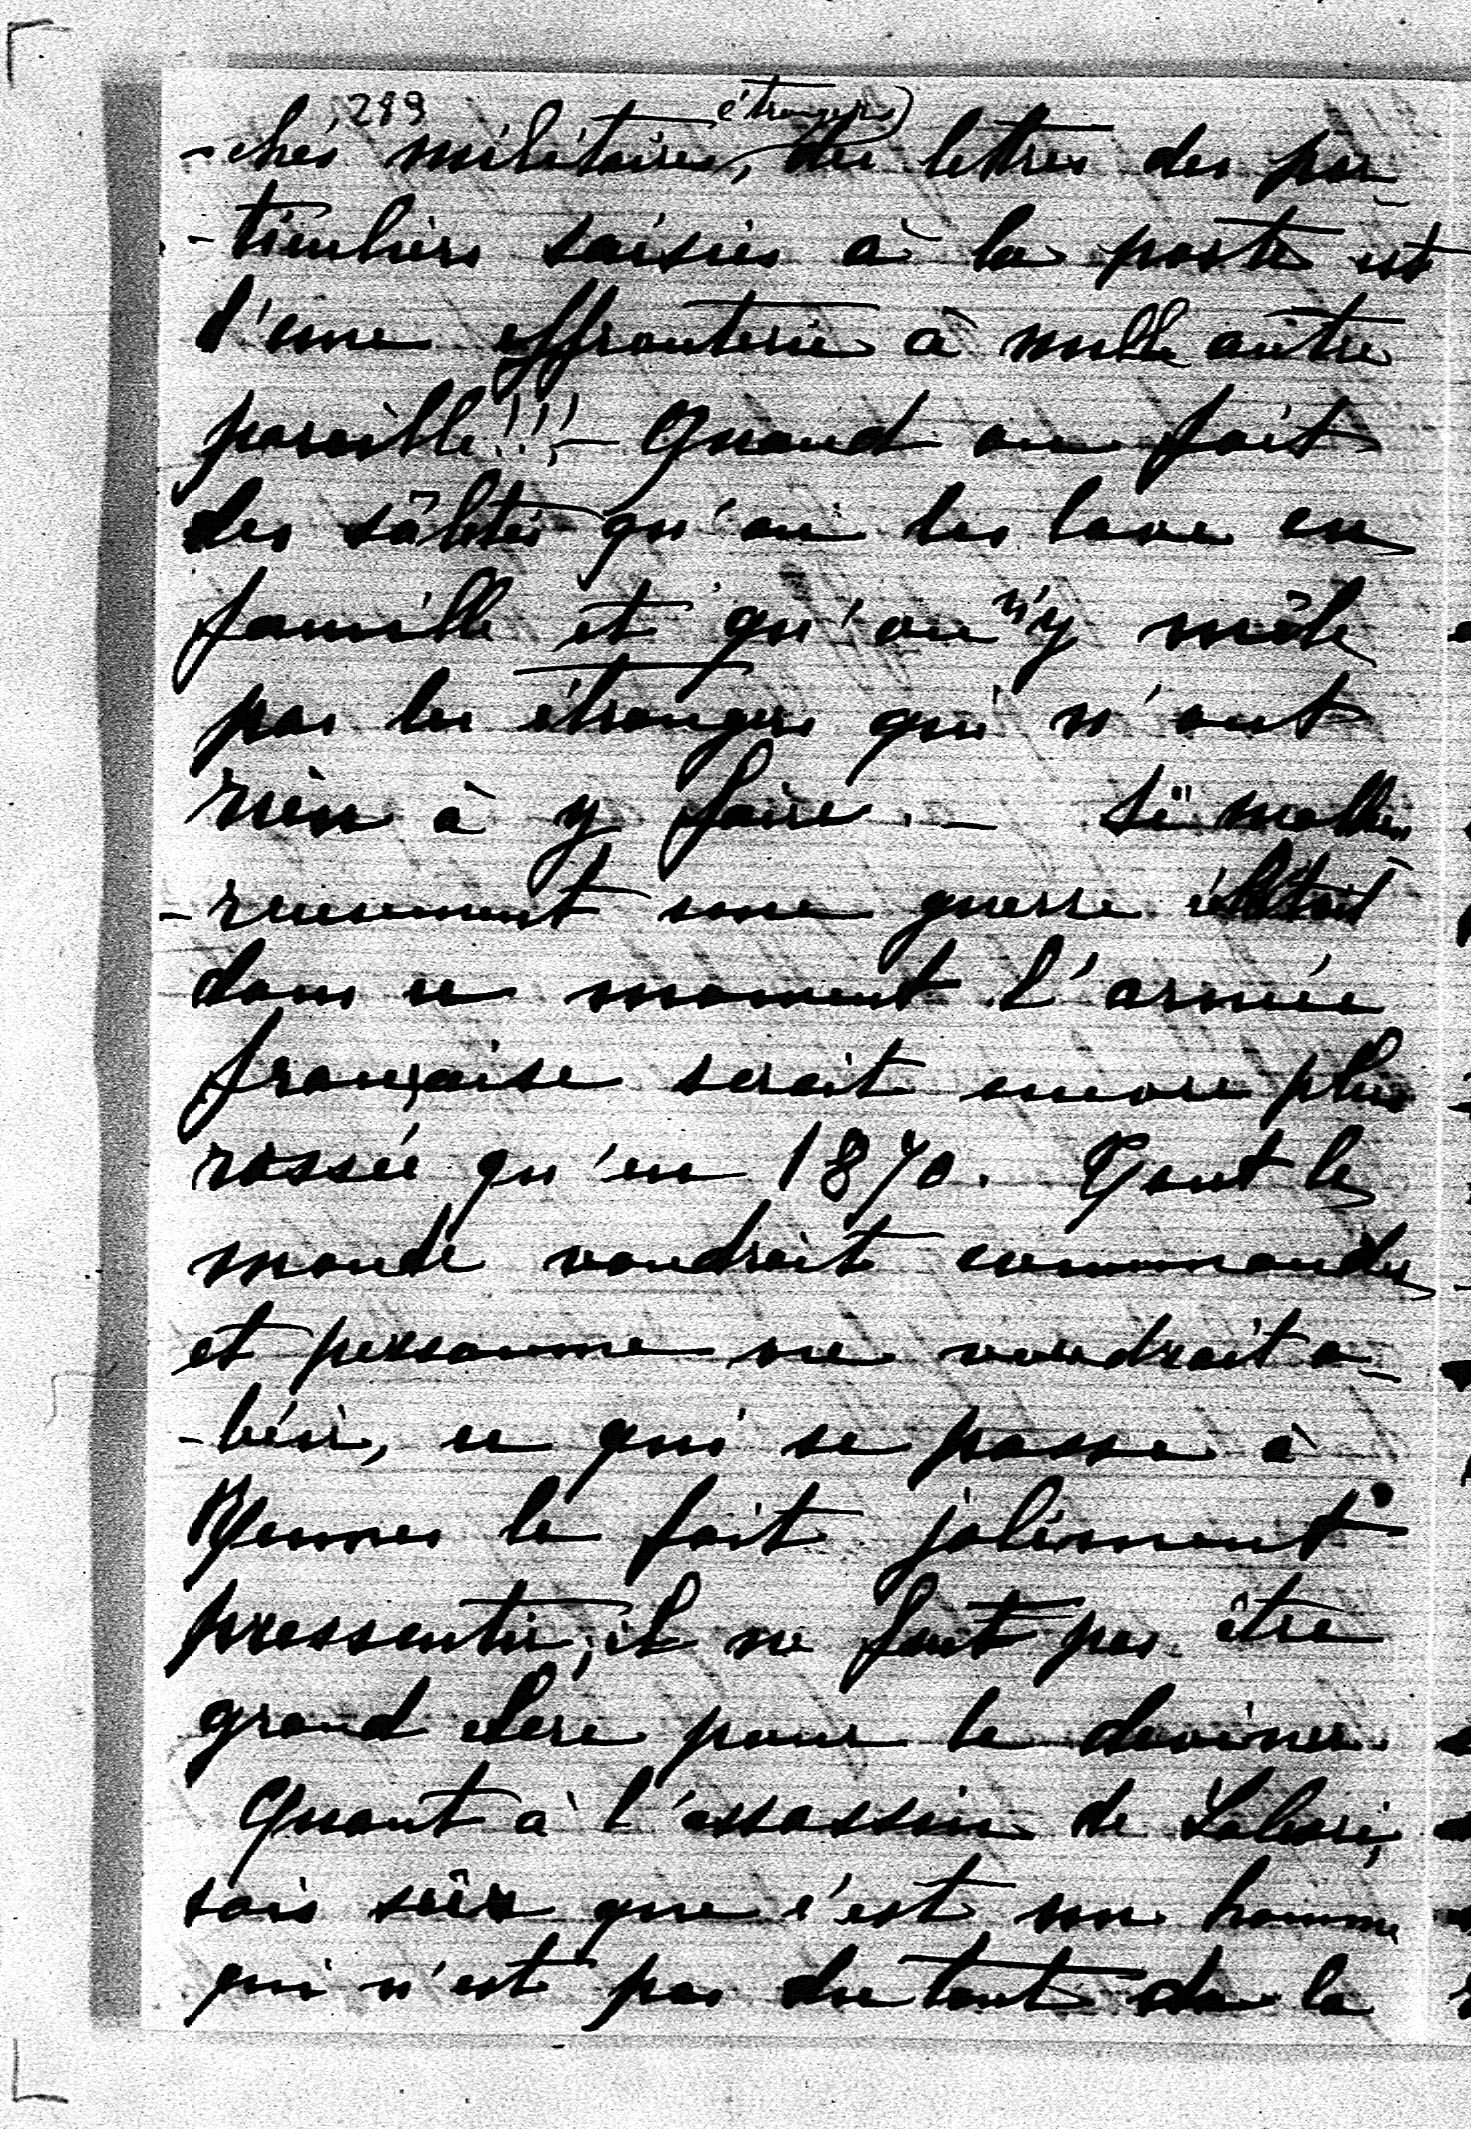 289
étrangers)
-chés militaires, des lettres des par
-ticuliers saisies à la poste est
d'une effronterie à nulle autre
pareille!!!- Quand on fait
des sâletés qu'on les lave en
famille et qu'on n'y mêle
pas les étrangers qui n'ont
rien à y faire. - Si malheu
-reusement une guerre éclatait
dans ce moment l'armée
française serait encore plus
rossée qu'en 1870. Tout le
monde voudrait commander
et personne ne voudrait o-
-béir, ce qui se passe à
Rennes le fait joliment
pressentir, il ne faut pas être
grand clerc pour le deviner.
Quant à l'assassin de Labori,
sois sûr que c'est un homme
qui n'est pas du tout de la